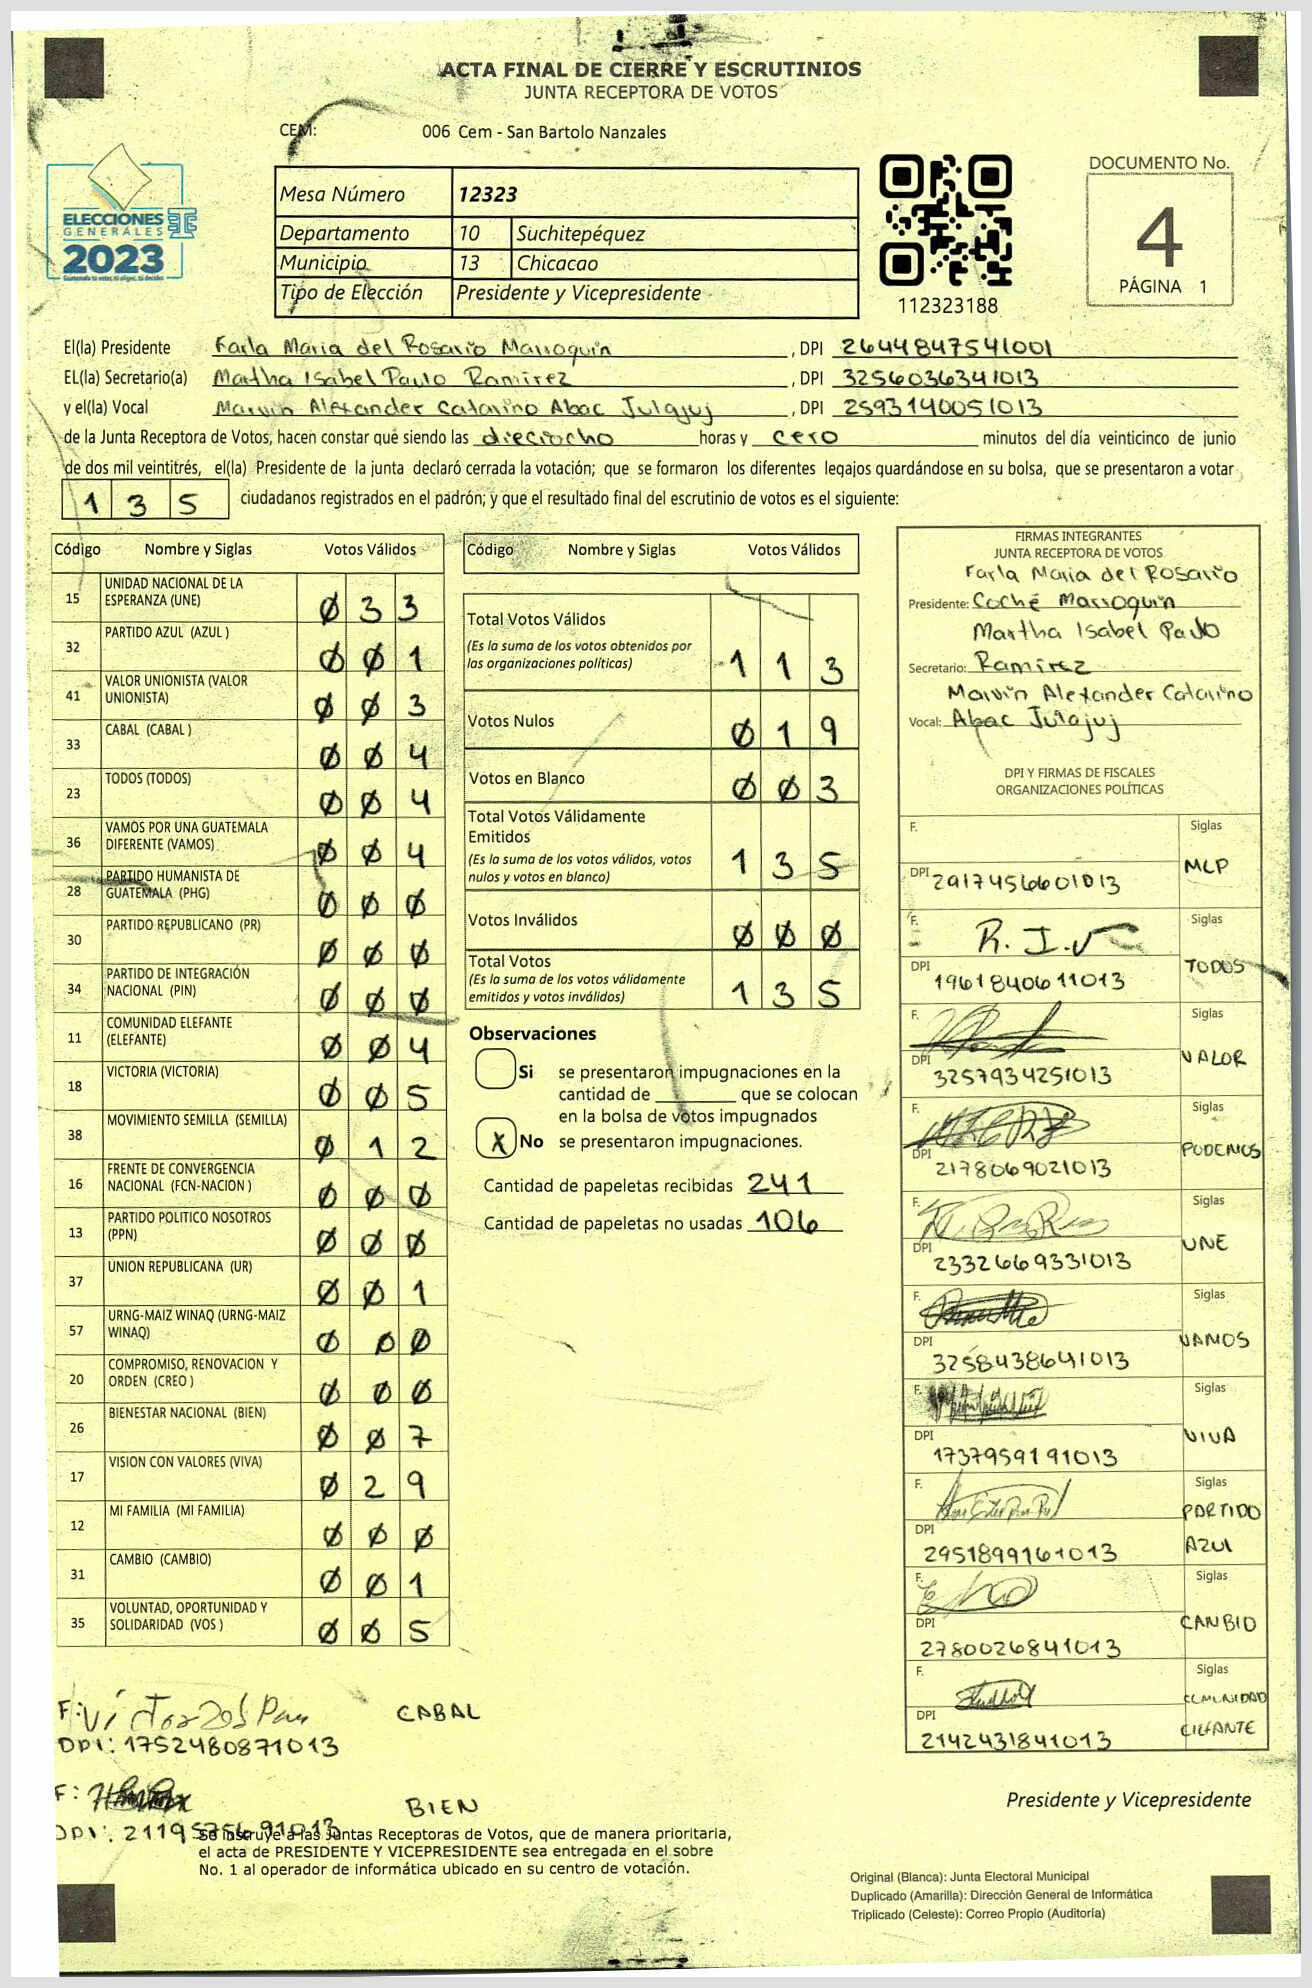 ACTA FINAL DE CIERRE Y ESCRUTINIOS
JUNTA RECEPTORA DE VOTOS
CEM: 006 Cem - San Bartolo Nanzales
ELECCIONES
GENERALES
2023
Mesa Número 12323
Departamento 10 Suchitepéquez
Municipio 13 Chicacao
Tipo de Elección Presidente y Vicepresidente
112323188
DOCUMENTO No.
4
PÁGINA 1
El(la) Presidente Farla Maria del Rosario Marroquin , DPI 2644847541001
EL(la) Secretario(a) Martha Isabel Paulo Ramirez , DPI 3256036341013
y el(la) Vocal Marvin Alexander Catarino Abac Julajuj , DPI 2593140051013
de la Junta Receptora de Votos, hacen constar que siendo las dieciocho horas y cero minutos del día veinticinco de junio
de dos mil veintitrés, el(la) Presidente de la junta declaró cerrada la votación; que se formaron los diferentes legajos quardándose en su bolsa, que se presentaron a votar
1 3 5 ciudadanos registrados en el padrón; y que el resultado final del escrutinio de votos es el siguiente:
Código Nombre y Siglas Votos Válidos
15 UNIDAD NACIONAL DE LA ESPERANZA (UNE) 0 3 3
32 PARTIDO AZUL (AZUL ) 0 0 1
41 VALOR UNIONISTA (VALOR UNIONISTA) 0 0 3
33 CABAL (CABAL ) 0 0 4
23 TODOS (TODOS) 0 0 4
36 VAMOS POR UNA GUATEMALA DIFERENTE (VAMOS) 0 0 4
28 PARTIDO HUMANISTA DE GUATEMALA (PHG) 0 0 0
30 PARTIDO REPUBLICANO (PR) 0 0 0
34 PARTIDO DE INTEGRACIÓN NACIONAL (PIN) 0 0 0
11 COMUNIDAD ELEFANTE (ELEFANTE) 0 0 4
18 VICTORIA (VICTORIA) 0 0 5
38 MOVIMIENTO SEMILLA (SEMILLA) 0 1 2
16 FRENTE DE CONVERGENCIA NACIONAL (FCN-NACION ) 0 0 0
13 PARTIDO POLITICO NOSOTROS (PPN) 0 0 0
37 UNION REPUBLICANA (UR) 0 0 1
57 URNG-MAIZ WINAQ (URNG-MAIZ WINAQ) 0 0 0
20 COMPROMISO, RENOVACION Y ORDEN (CREO ) 0 0 0
26 BIENESTAR NACIONAL (BIEN) 0 0 7
17 VISION CON VALORES (VIVA) 0 2 9
12 MI FAMILIA (MI FAMILIA) 0 0 0
31 CAMBIO (CAMBIO) 0 0 1
35 VOLUNTAD, OPORTUNIDAD Y SOLIDARIDAD (VOS ) 0 0 5
Código Nombre y Siglas Votos Válidos
Total Votos Válidos
(Es la suma de los votos obtenidos por
las organizaciones políticas) 1 1 3
Votos Nulos 0 1 9
Votos en Blanco 0 0 3
Total Votos Válidamente
Emitidos
(Es la suma de los votos válidos, votos
nulos y votos en blanco) 1 3 5
Votos Inválidos 0 0 0
Total Votos
(Es la suma de los votos válidamente
emitidos y votos inválidos) 1 3 5
Observaciones
Si se presentaron impugnaciones en la
cantidad de ________ que se colocan
en la bolsa de votos impugnados
X No se presentaron impugnaciones.
Cantidad de papeletas recibidas 241
Cantidad de papeletas no usadas 106
FIRMAS INTEGRANTES
JUNTA RECEPTORA DE VOTOS
Farla Maria del Rosario
Presidente: Coché Marroquin
Martha Isabel Paulo
Secretario: Ramirez
Marvin Alexander Catarino
Vocal: Abac Julajuj
DPI Y FIRMAS DE FISCALES
ORGANIZACIONES POLÍTICAS
F. Siglas
DPI 2917456601013 MLP
F. R. I. Siglas
DPI 1961840611013 TODOS
F. Siglas
DPI 3257934251013 VALOR
F. Siglas
DPI 2178069021013 PODEMOS
F. Siglas
DPI 2332669331013 UNE
F. Siglas
DPI 3258438641013 VAMOS
F. Siglas
DPI 1737959191013 VIVA
F. Siglas
DPI 2951899161013 PARTIDO AZUL
F. Siglas
DPI 2780026841013 CANBIO
F. Siglas
DPI 2142431841013 COMUNIDAD ELEFANTE
F: Victor CABAL
DPI: 1752480871013
F: BIEN
DPI: 2119575691013
Se instruye a las Juntas Receptoras de Votos, que de manera prioritaria,
el acta de PRESIDENTE Y VICEPRESIDENTE sea entregada en el sobre
No. 1 al operador de informática ubicado en su centro de votación.
Presidente y Vicepresidente
Original (Blanca): Junta Electoral Municipal
Duplicado (Amarilla): Dirección General de Informática
Triplicado (Celeste): Correo Propio (Auditoría)